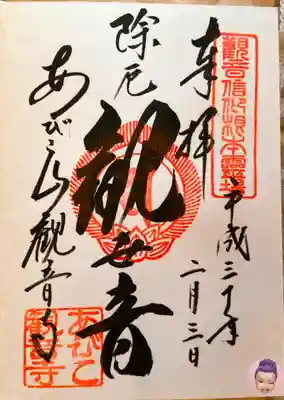 觀音信仰根本霊場
奉拝
平成三十年
二月三日
除厄
観世音
あびこ山観音寺
あびこ
観音寺